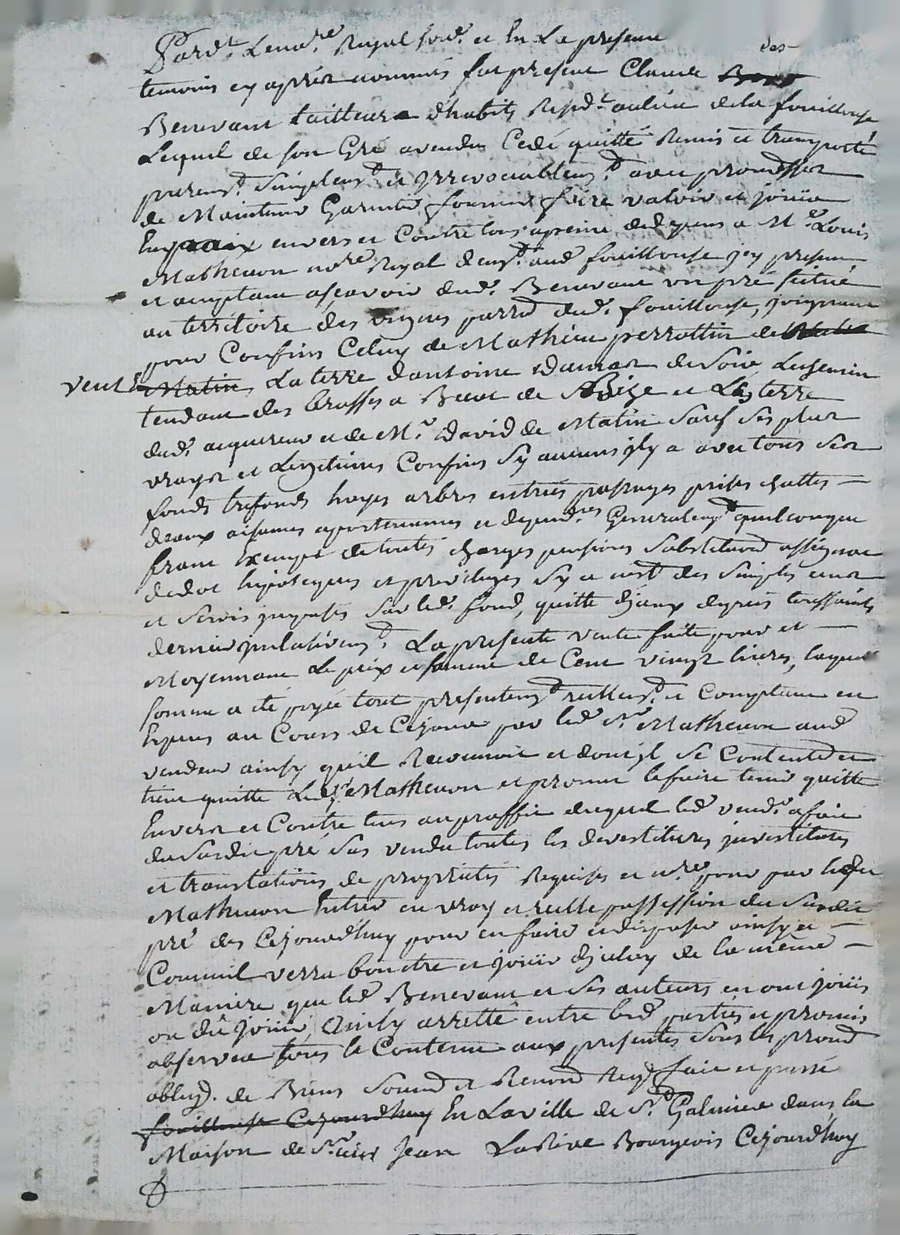 Pard.t Le no.re Royal sou.é et En La presence des
temoins cy après nommés fut present Claude
Benevant tailleur d'habits Resid.t au lieu de la fouillouse
Lequel de son Gré a vendu Cedé quitté Remis et transporté
purem.t Simplem.t et Irrevocablem.t avec promesse
de Maintenir Garentir fournir faire valoir et jouir
En paix envers et Contre tous a peine de depens a M.e Louis
Mathevon no.re Royal aud. fouillouse icy present
et acceptant asçavoir dud. Benevant un pré scitué
au territoire des vignes parr.e dud. fouillouse, joignant
pour Confins Celuy de Mathieu perrottin de
vent Matin La terre d'antoine Damas de Soir Le chemin
tendant des brosses a Bize et La terre
dud. acquereur et de M.r David de Matin Sauf ses plus
vrays et Legitimes Confins Sy aucuns il y a avec tous ses
fonds trefonds hayes arbres entrées passages prises
deaux aisances apartenances et depend.ces Generalem.t quelconque
franc Exempt de toutes charges pensions Substitution assignat
de dot hipoteques et privileges Sy ce n'est des simples cens
et servis imposés Sur led. fond, quitte d'iceux depuis toussaints
dernier La presente vente faite pour et
Moyennant Le prix et somme de Cent vingt livres, laquelle
somme a été payée tout presentem.t reellem.t et Comptant en
Especes au Cours de Cejour par led. M.e Mathevon aud.
vendeur ainsy qu'il Reconnoit et dont il Se Contente et
tient quitte Led. S.r Mathevon et promet le faire tenir quitte
Envers et Contre tous au proffit duquel led. vend.r a fait
du Susdit pré Sus vendu toutes les devestitures investitures
et translations de proprietés Requises et n.re pour par led.
Mathevon Entrer en vray et reelle possession du Susdit
pré des Cejourdhuy pour en faire et disposer ainsy et
Comme il verra bon etre et jouir d'iceluy de la meme
Maniere que led. Benevant et Ses auteurs en ont jouis
ou dû jouir Ainsy arretté entre lesd. parties et promis
observer tous le Contenu aux presentes Sous les
oblig.n de Biens Soum.n et Renon.n fait et passé
fouillouse Cejourdhuy En La ville de S.t Galmier dans la
Maison de S.r Jean Bourgeois Cejourdhuy